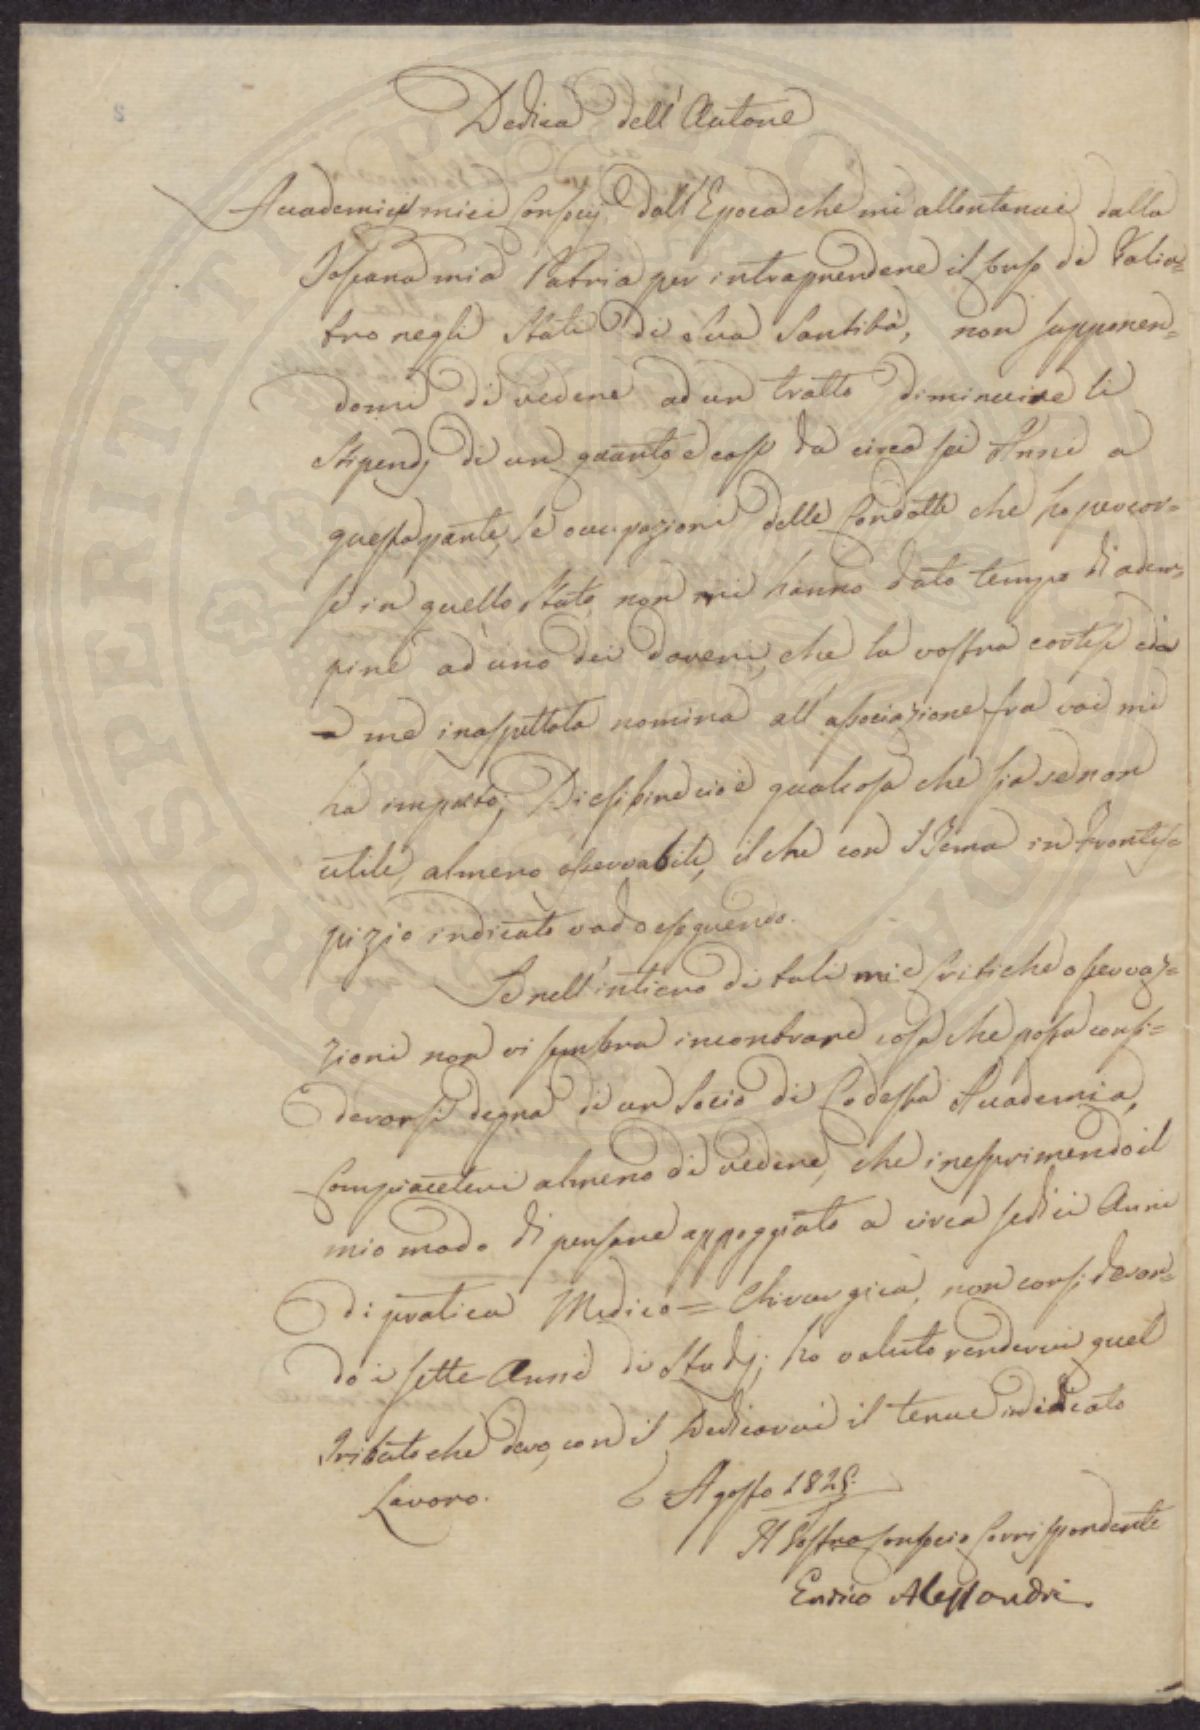 Dedica dell'Autore
Accademici miei Consocj, dall'Epoca che mi allontanai dalla
Toscana mia Patria per intraprendere il corso di
tro negli Stati di Sua Santità, non supponen=
domi di vedere ad un tratto diminuire li
Stipendj di un quarto e così da circa sei Anni a
questa parte, le occupazioni delle Condotte che ho percor=
se in quello Stato non mi hanno dato tempo di adem=
pire ad uno dei doveri, che la vostra cortese ed a
me inaspettata nomina all'associazione fra voi mi
ha imposto; Di esibire cioè qualcosa che sia se non
utile, almeno osservabile, il che con il Tema in Frontis=
pizio indicato vado eseguendo.
Se nell'intiero di tali mie Critiche osservaz=
zioni non vi sembra incontrare cosa che possa consi=
derarsi degna di un Socio di Codesta Accademia,
Compiacetevi almeno di vedere, che inesprimendo il
mio modo di pensare appoggiato a circa sedici Anni
di pratica Medico=Chirurgica, non consideran=
do i sette Anni di Studj; ho voluto rendervi quel
Tributo che devo, con il Dedicarvi il tenue indicato
Lavoro.
6 Agosto 1828.
Il Vostro Consocio Corrispondente
Enrico Alessandri.
PROSPERITATI PUBLICAE